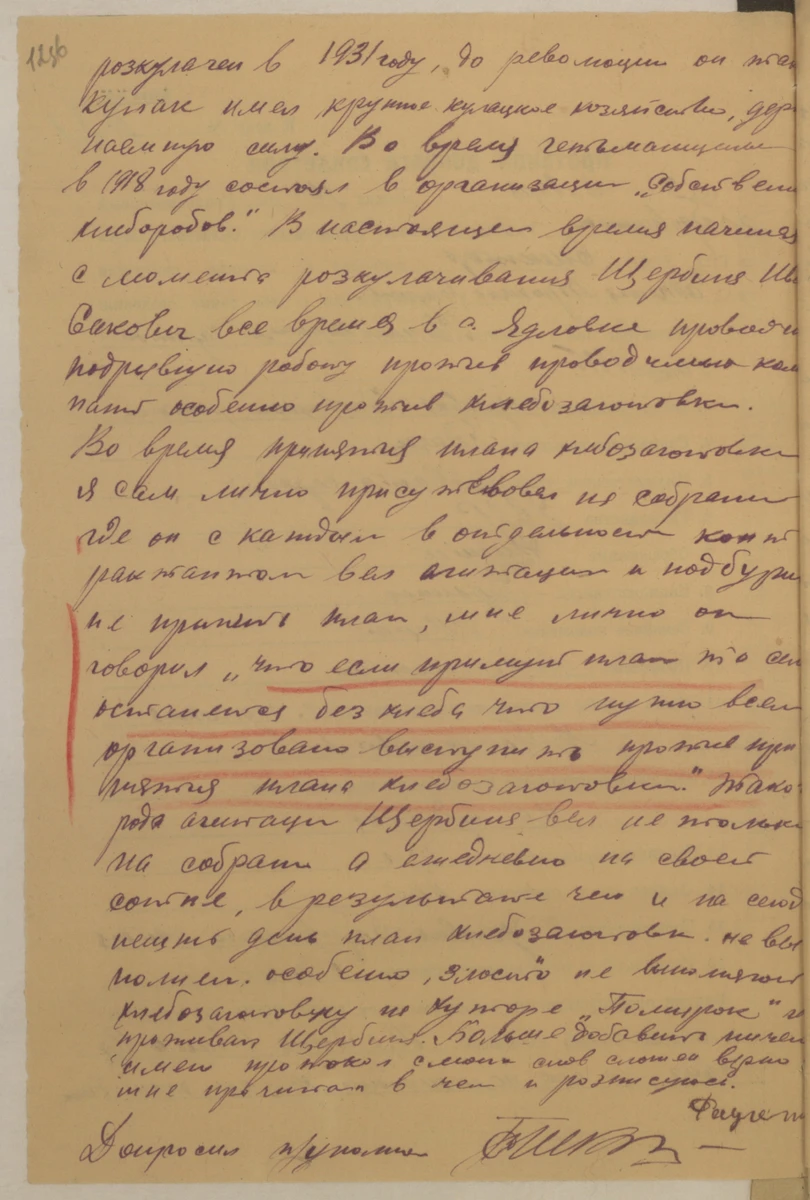 125б
розкулачен в 1931 году, до революции он
кулак имел крупное кулацкое хозяйство, дер
наемную силу. Во время гетьманщины
в 1918 году состоял в организации „Собствени
хлиборобов." В настоящее время начиная
с момента розкулачивания Щербина
Сакович все время в с. Ядловке проводи
подрывную работу против проводимых кам
паний особенно против хлебозаготовки.
Во время принятия плана хлебозаготовки
я сам лично присутствовал на собрании
где он с каждым в отдельности конт
рактантом вел агитацию и подбури
не принять план, мне лично он
говорил „что если примут план то сел
останется без хлеба что нужно всем
организовано выступить против при
нятия плана хлебозаготовки." Тако
рода агитации Щербина вел не только
на собрании а ежедневно на своей
сотне, в результате чего и на сегод
нешний день план хлебозаготовк. не вы
полнен. особенно „злостно" не выполняют
хлебозаготовку на хуторе
проживает Щербина. Больше добавить ничего
имею протокол с моих слов сложен верно
мне прочитан в чем и розписуюсь.
Допросил